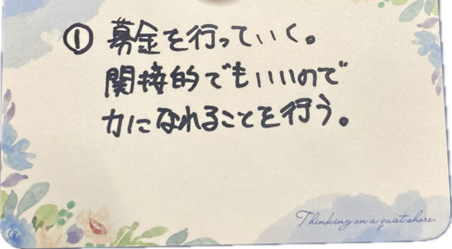 ① 募金を行っていく。
間接的でもいいので
力になれることを行う。
Thinking on a quiet shore.